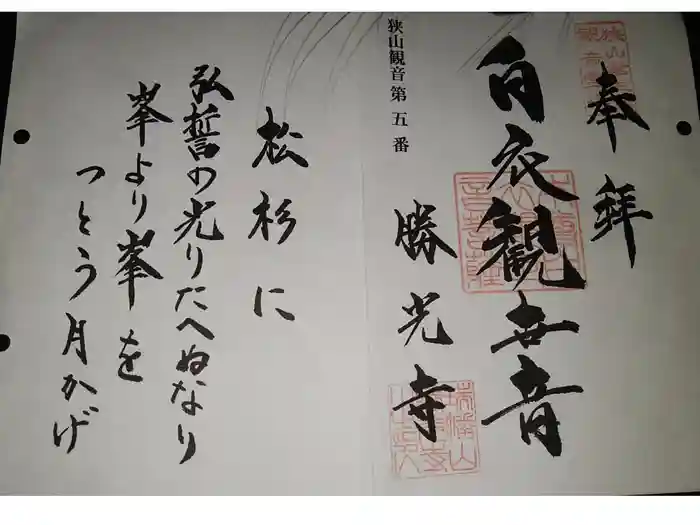 奉拝
白衣観世音
勝光寺
狭山観音第五番
松杉に
弘誓の光りたへぬなり
峯より峯を
つとう月かげ